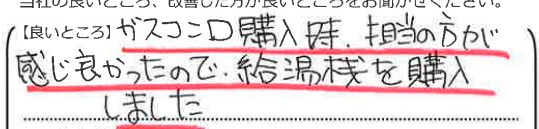 当社の良いところ、改善した方が良いところをお聞かせください。
【良いところ】ガスコンロ購入時、担当の方が
感じ良かったので、給湯機を購入
しました